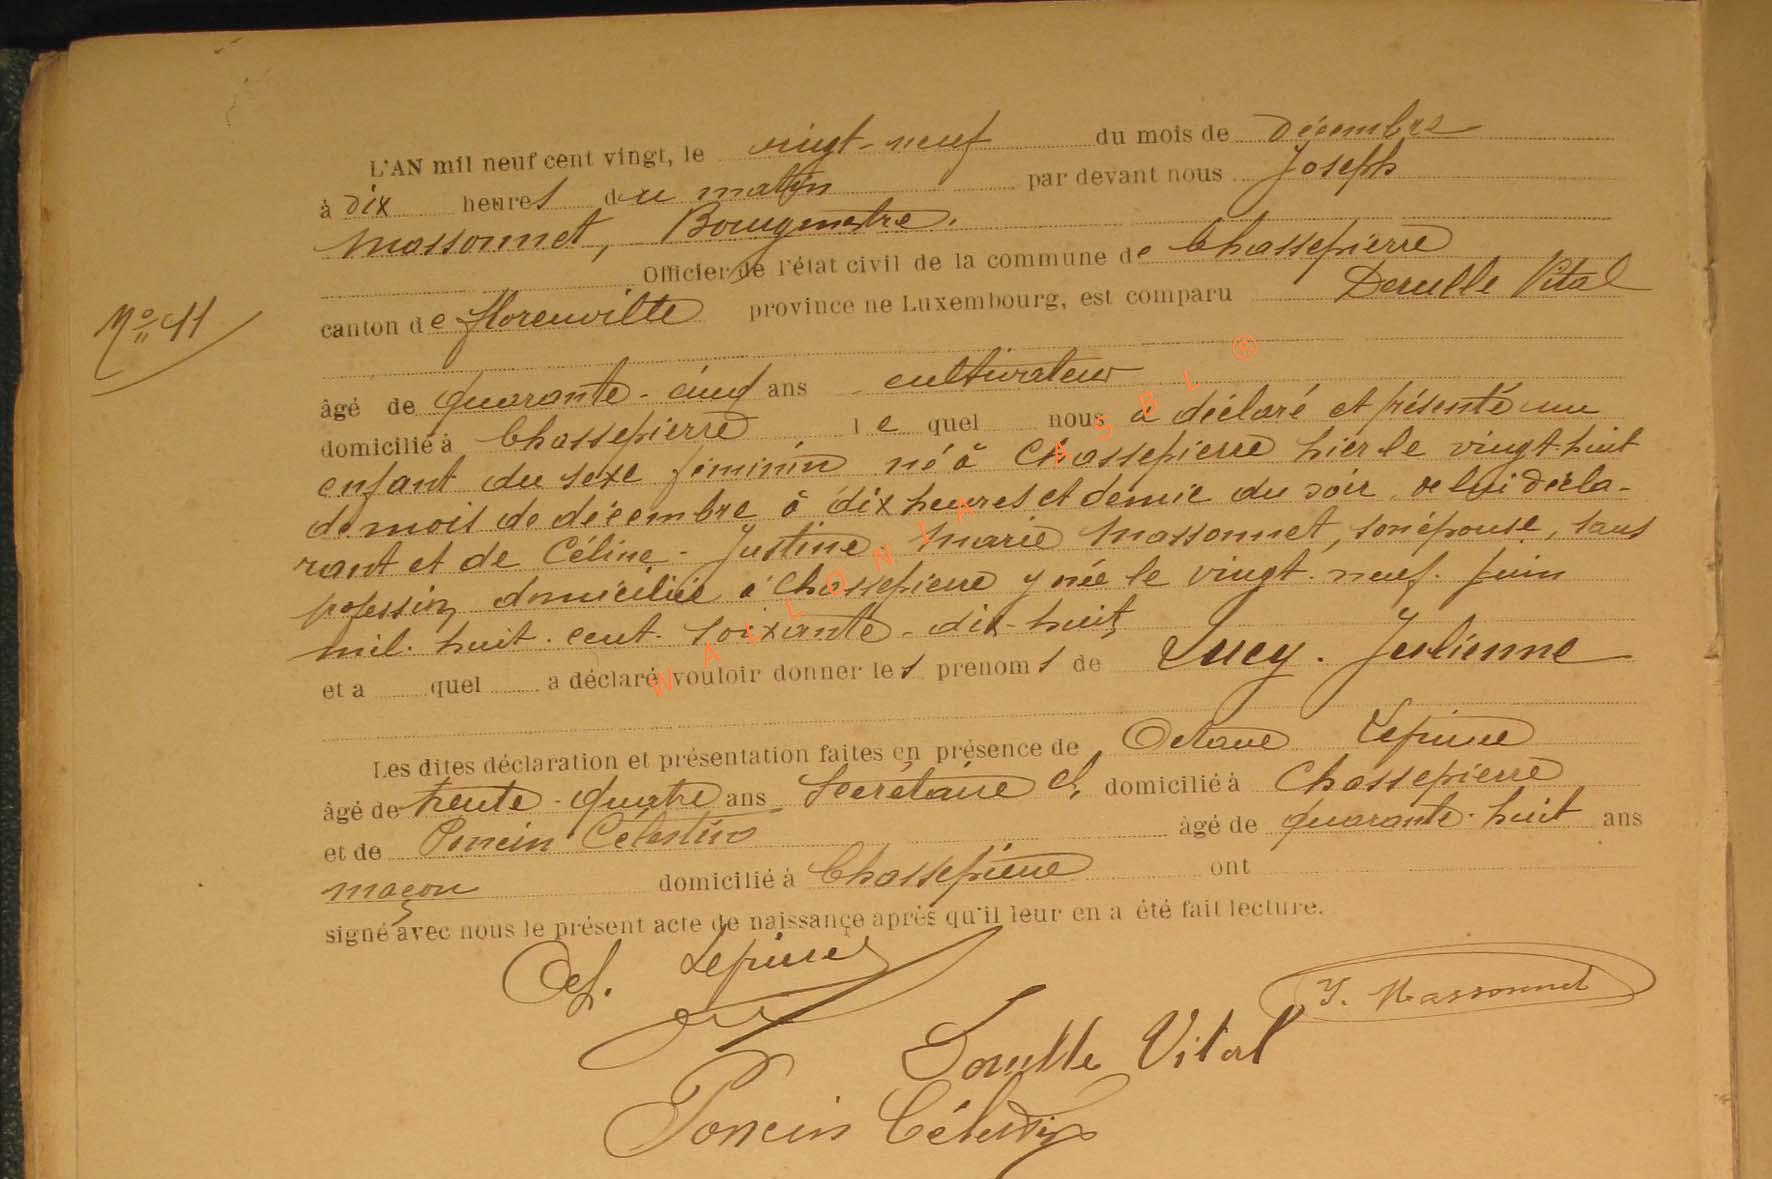 L'AN mil neuf cent vingt, le vingt-neuf du mois de décembre
à dix heures du matin par devant nous Joseph
Massonnet, Bourgmestre.
Officier de l'état civil de la commune de Chassepierre
canton de Florenville province ne Luxembourg, est comparu Derulle Vital
N° 11
âgé de quarante-cinq ans cultivateur
domicilié à Chassepierre lequel nous a déclaré et présenté un
enfant du sexe féminin né à Chassepierre hier le vingt-huit
du mois de décembre à dix heures et demie du soir de lui décla-
rant et de Céline-Justine-Marie Massonnet, son épouse, sans
profession domiciliée à Chassepierre y née le vingt-neuf juin
mil-huit-cent-soixante-dix-huit
et a quel a déclaré vouloir donner les prenoms de Lucy-Julienne
Les dites déclaration et présentation faites en présence de Octave Lepine
âgé de trente-quatre ans Secrétaire Cl, domicilié à Chassepierre
et de Poncin Célestin âgé de quarante-huit ans
maçon domicilié à Chassepierre ont
signé avec nous le présent acte de naissance après qu'il leur en a été fait lecture.
Oct. Lepine
J. Massonnet
Derulle Vital
Poncin Célestin
WALLONIA ASBL ®